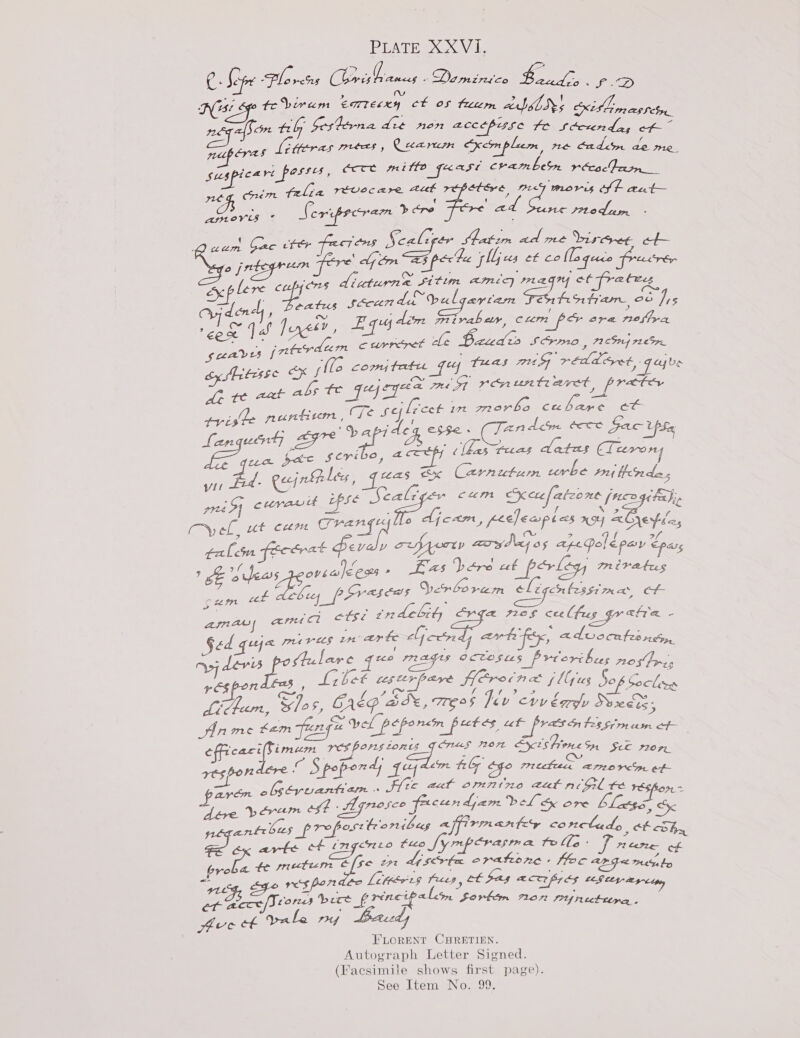 PLATE XXVI.
Q. Sept. Florens Christianus. Dominico Baudio. S. D
Nisi ego te virum et os tuum existimassem,
negassem tibj hesterna die non accepisse te secundas et
nuperas litteras meas, Quarum exemplum, ne eadem de me
suspicari possis, ecce mitto quasi cramben recoctam
neq enim talia revocare aut repetere, mej moris est aut
amoris. Scripseram vero fere ad hunc modum.
Quum hac iter faciens Scaliger statim ad me viseret, et
ego jntegrum fere djem aspectu jllius et colloquio fruerer
explere cupiens diuturnæ sitim amicj magnj et fratris
vjdendj, beatus secundū vulgariam sententiam,
Equjdem mirabar, cum per ora nostra
suavis jnterdum curreret de Baudio sermo, neminem
exstitisse ex jllo comitatu quj tuas mihj redderet, qujve
de te aut abs te qujcquā mihj renuntiaret, præter
triste nuntium, Te scjlicet in morbo cubare et
languentj ægre vapidéq esse. Tandem ecce hac ipsa
die qua hæc scribo, accepj illas tuas datas Turonj
VII Eid. Qujntiles, quas ex Carnutum urbe mittendas
mihj curavit ipse Scaliger cum excusatione
vel, ut cum Tranqujllo djcam,
talem fecerat
Eas vero ut perlegj miratus
sum ut debuj phraseωs verborum eligentissimæ, et
amavj amici etsi indebitj erga nos cultus gratia.
Sed quja mirus in arte djcendj artifex, advocationem
vjderis postulare quo magis octosus prioribus nostris
respondeas, Libet usurpare Heroinæ jllius Sophocleæ
dictum,
An me tam fungū vel peponem putes, ut præsentissimum et
efficacissimum responsionis genus non existimem sic non
respondere? Spopondj qujdem tibj ego mutuū amorem et
parem observantiam. Hic aut omnino aut nihil te respon-
dere verum est. Agnosco facundjam vel ex ore blæso, ex
negantibus propositionibus affirmanter concludo, et
ex arte et ingenio tuo sympérasma tollo. J nunc, et
proba te mutum esse in djserta oratione. Hoc argumento
neq, ego respondeo litteris tuis, et has accipies usurarum
et accessionis vice principalem sortem non mjnutura.
Ave et vale mj Baudj
FLORENT CHRETIEN.
Autograph Letter Signed.
(Facsimile shows first page).
See Item No. 99.